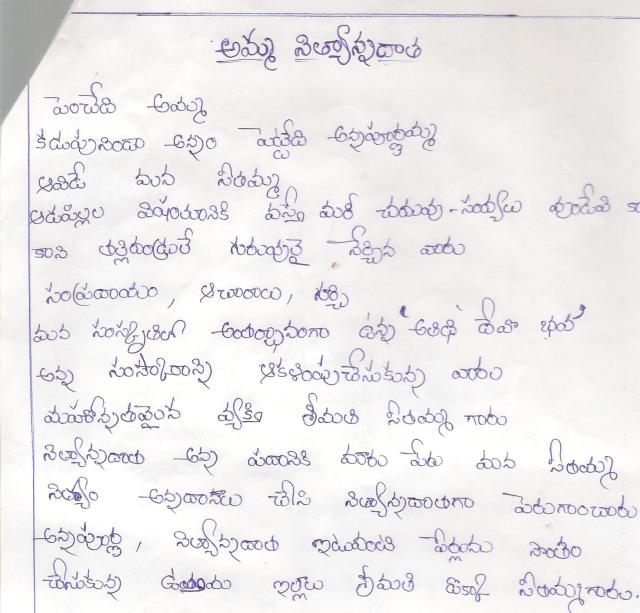 అమ్మ నిత్యాన్నదాత
పెంచేది అమ్మ
కడుపునిండా అన్నం పెట్టేది అన్నపూర్ణమ్మ
ఆవిడే మన సీతమ్మ
ఆడపిల్లల విషయానికి వస్తే మరీ చదువు - సయ్యలు వుండేవి కా
కాని తల్లిదండ్రులే గురువులై నేర్పిన వారు
సంప్రదాయం, ఆచారాలు, నేర్పి
మన సంస్కృతిలో అంతర్భాగంగా ఉన్న 'అతిథి దేవో భవ'
అన్న సంస్కారాన్ని ఆకళింపుచేసుకున్న వారు
మహోన్నతమైన వ్యక్తి శ్రీమతి సీతమ్మ గారు
నిత్యాన్నదాత అన్న పదానికి మారు పేరు మన సీతమ్మ
నిత్యం అన్నదానాలు చేసి నిత్యాన్నదాతగా పేరుగాంచారు
అన్నపూర్ణ, నిత్యాన్నదాత ఇటువంటి పేర్లును సొంతం
చేసుకున్న ఉత్తమ ఇల్లాలు శ్రీమతి డొక్కా సీతమ్మగారు.